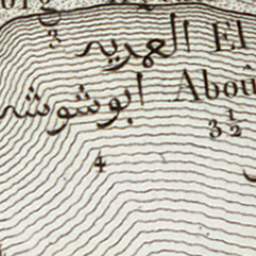 3 العمريه El
ابو شوشه Abou
3 1/2
4